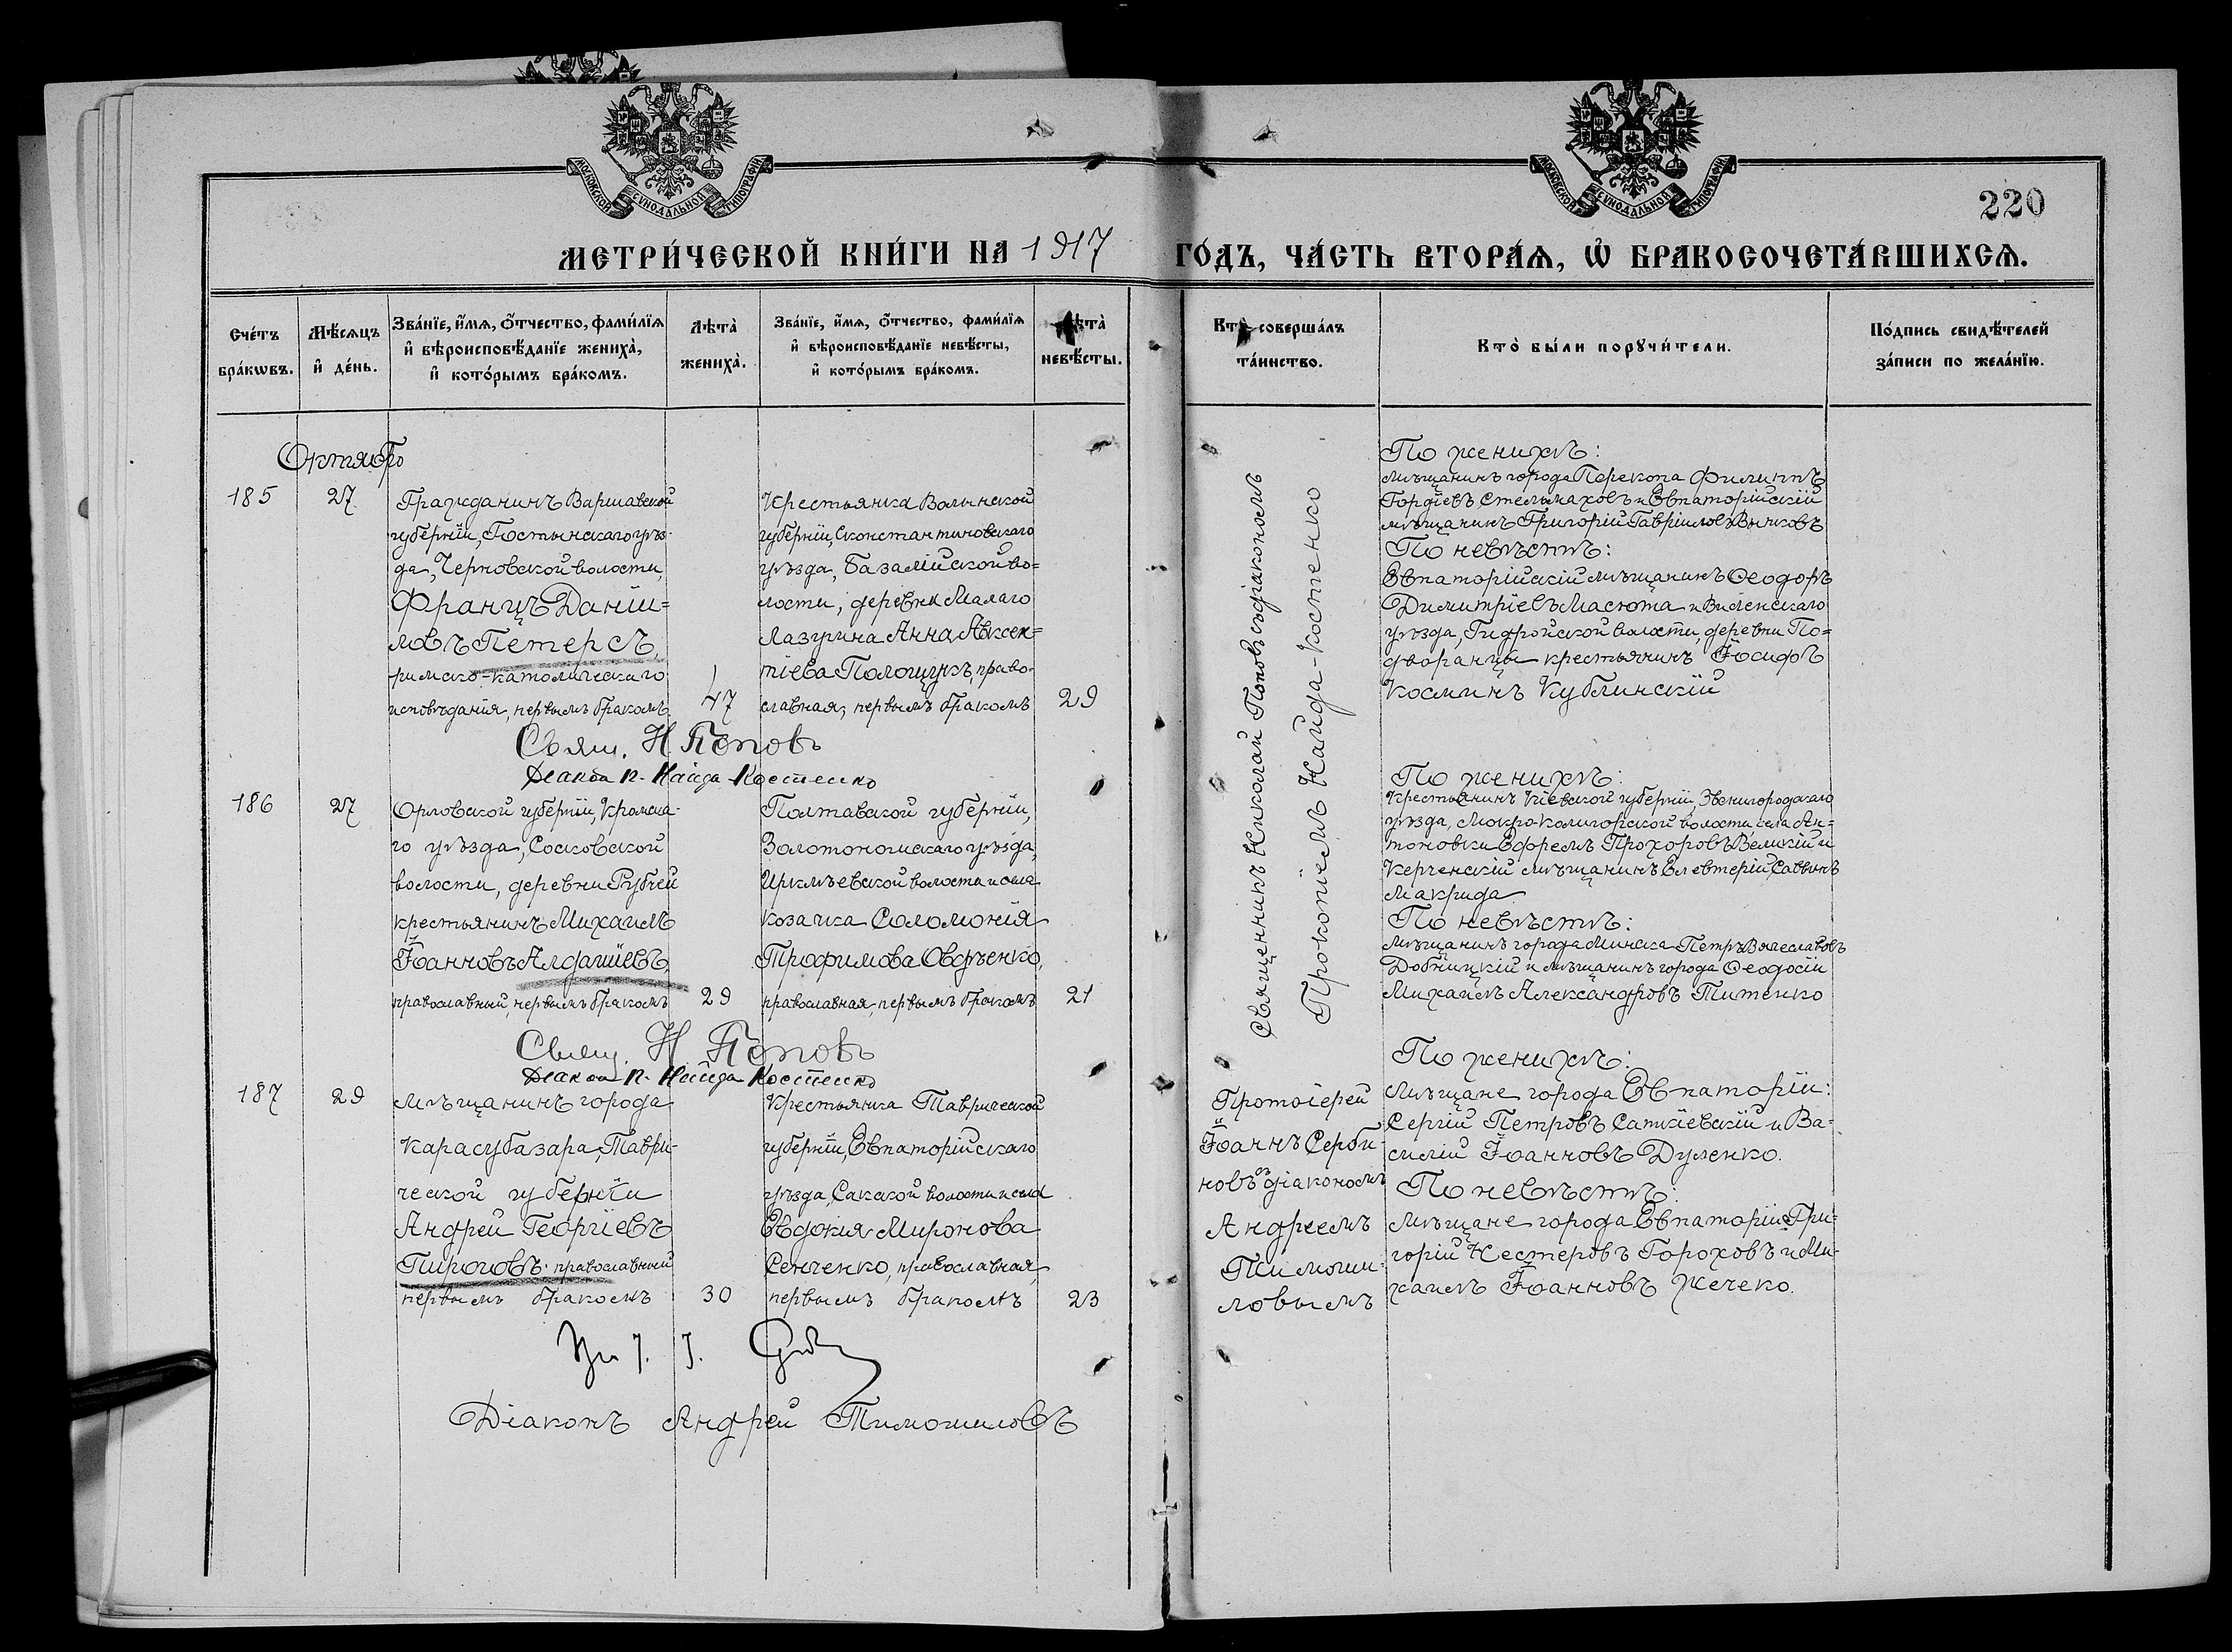 МОСКОВСКОЙ СѴНОДАЛЬНОЙ ТИПОГРАФІИ
МОСКОВСКОЙ СѴНОДАЛЬНОЙ ТИПОГРАФІИ
220
МЕТРИ́ЧЕСКОЙ КНИ́ГИ НА 1917 ГО́ДЪ, ЧА́СТЬ ВТОРА́Ѧ, Ѽ БРАКОСОЧЕТА́ВШИХСѦ.
Сче́тъ
бра́кωвъ.
Мѣ́сѧцъ
и҆ де́нь.
Зва́нїе, и҆́мѧ, ѻ҆́тчество, фами́лїѧ
и҆ вѣроисповѣ́данїе жениха̀,
и҆ кото́рымъ бра́комъ.
Лѣта̀
жениха̀.
Зва́нїе, и҆́мѧ, ѻ҆́тчество, фами́лїѧ
и҆ вѣроисповѣ́данїе невѣ́сты,
и҆ кото́рымъ бра́комъ.
Лѣта̀
невѣ́сты.
Кто̀ соверша́лъ
та́инство.
Кто̀ бы́ли порꙋчи́тели.
По́дпись свидѣ́телей
за́писи по жела́нїю.
Октябрь
185
27
Гражданинъ Варшавской
губерніи, Гостынскаго уѣз-
да, Черновской волости,
Францъ Даніи=
ловъ Петерсъ,
римско-католическаго
исповѣданія, первымъ бракомъ
47
Крестьянка Волынской
губерніи, Сконстантиновскаго
уѣзда, Базалійской во=
лости, деревни Малаго
Лазучина Анна Авксен=
тіева Полощукъ, право-
славная, первымъ бракомъ
29
Свящ. Н Поповъ
Діакон П. Найда-Костенко
Священникъ Николай Поповъ съ діакономъ
Прокопіемъ Найда-Костенко
По женихѣ:
мѣщанинъ города Перекопа Филиппъ
Гордіевъ Стельмаховъ и Евпаторійскій
мѣщанинъ Григорій Гавріиловъ Вычковъ
По невѣстѣ:
Евпаторійскій мѣщанинъ Ѳеодоръ
Димитріевъ Масюта и Виленскаго
уѣзда, Гидройской волости, деревни По=
дворанцы крестьянинъ Іосифъ
Косминъ Кублинскій
186
27
Орловской губерніи, Кромска-
го уѣзда, Сосковской
волости, деревни Рублей
крестьянинъ Михаилъ
Іоанновъ Алдашевъ,
православный, первымъ бракомъ
29
Полтавской губерніи,
Золотоношскаго уѣзда,
Ирклѣевской волости и села
козачка Соломонія
Трофимова Овдѣенко,
православная, первымъ бракомъ
21
Свящ. Н. Поповъ
Діакон П. Найда Костенко
По женихѣ:
Крестьянинъ Кіевской губерніи, Звенигородскаго
уѣзда, Мокро-Калигорской волости, села Ан=
тоновки Ефремъ Прохоровъ Великій и
Керченскій мѣщанинъ Елевтерій Саввинъ
Макрида
По невѣстѣ:
мѣщанинъ города Минска Петръ Вячеславовъ
Добницкій и мѣщанинъ города Ѳеодосіи
Михаилъ Александровъ Титенко
187
29
Мѣщанинъ города
Карасубазара, Таври-
ческой губерніи
Андрей Георгіевъ
Пироговъ православный
первымъ бракомъ
30
Крестьянка Таврической
губерніи, Евпаторійскаго
уѣзда, Сакской волости и села
Евдокія Миронова
Сенченко, православная,
первымъ бракомъ
23
Протоіерей
Іоаннъ Серби-
новъ съ діакономъ
Андреемъ
Тимоши-
ловымъ
По женихѣ:
Мѣщане города Евпаторіи:
Сергій Петровъ Саткіевскій и Ва-
силій Іоанновъ Дуленко.
По невѣстѣ:
Мѣщане города Евпаторіи: Гри-
горій Нестеровъ Гороховъ и Ми-
хаилъ Іоанновъ Жечеко.
Діаконъ Андрей Тимошиловъ